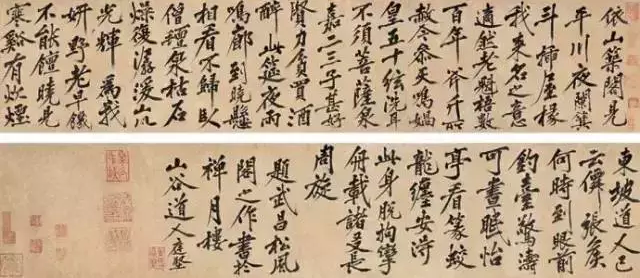 依山築閣見
平川夜闌箕
斗插屋椽
我來名之意
適然老魁梧數
百年斧斤所
赦今參天鳴媧
皇五十絃洗耳
不須菩薩泉
嘉二三子甚好
賢力貧買酒
醉此筵夜雨
鳴廊到曉懸
相看不歸臥
僧氈泉枯石
燥復潺湲山川
光輝為我
妍野老旱饑
不能饘曉見
寒谿有炊煙
東坡道人已
張矦
何時到眼前
釣臺驚濤
可晝怡
亭看篆蛟
龍纏安得
此身脫拘攣
舟載諸友長
周旋
題武昌松風
閣之作書於
禪月樓
山谷道人庭堅